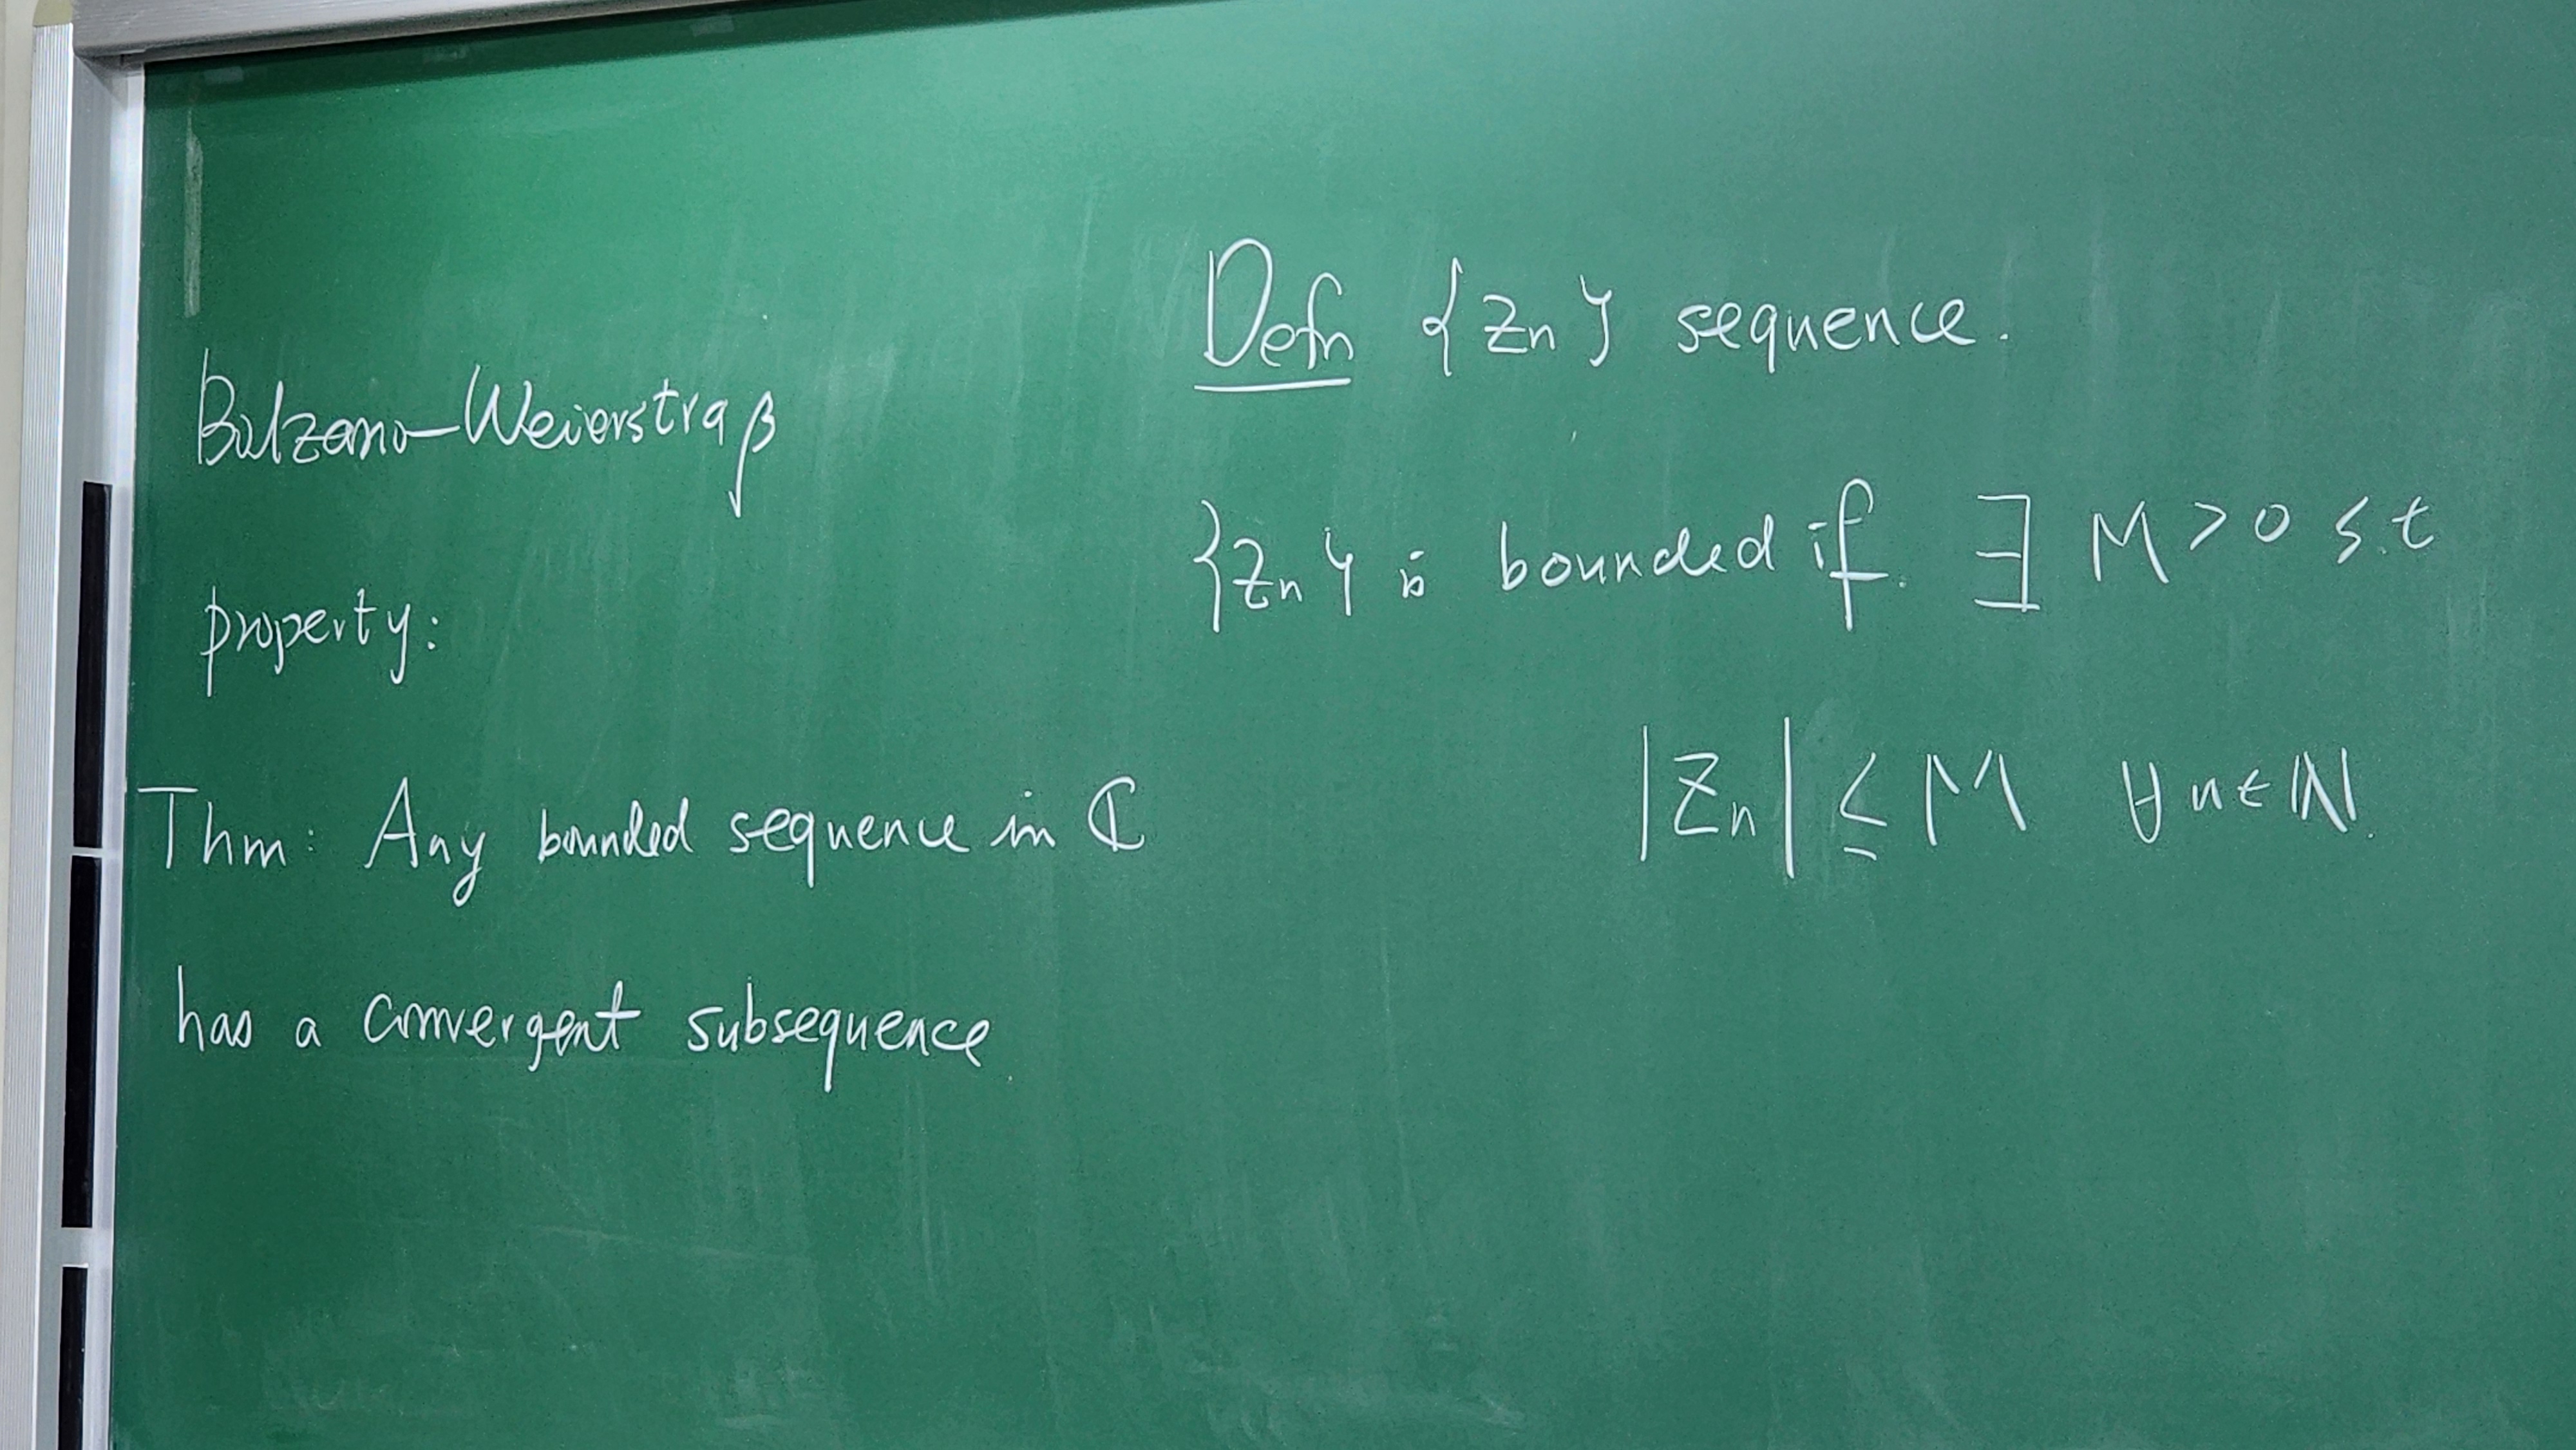 Bolzano-Weierstraß
property:
Thm: Any bounded sequence in ℂ
has a convergent subsequence
Defn {Zn} sequence.
{Zn} is bounded if. ∃ M > 0 s.t
|Zn| ≤ M ∀ n ∈ ℕ.